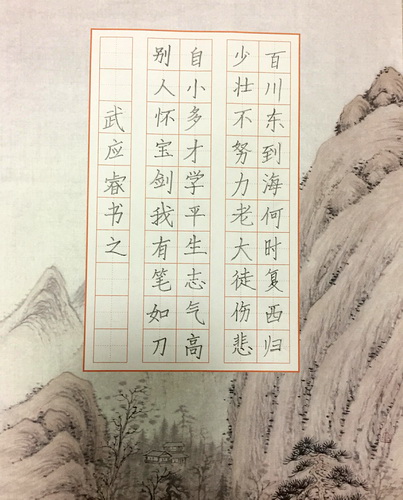 百川东到海何时复西归
少壮不努力老大徒伤悲
自小多才学平生志气高
别人怀宝剑我有笔如刀
武应睿书之